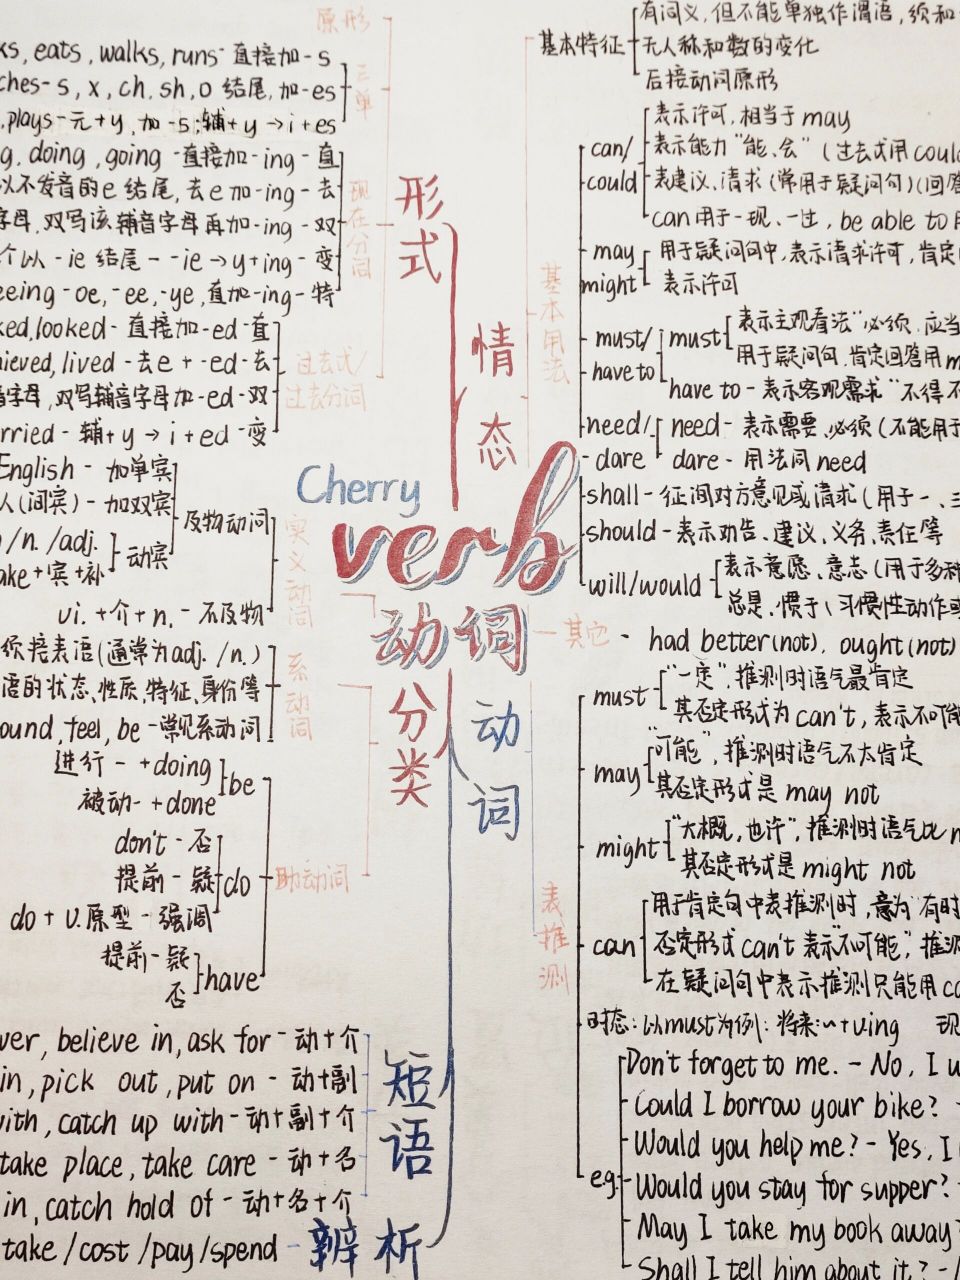 verb
动词
Cherry
形式
原形
三单
ks, eats, walks, runs - 直接加 - s
ches - s, x, ch, sh, o 结尾, 加 - es
, plays - 元 + y, 加 - s; 辅 + y → i + es
现在分词
g, doing, going - 直接加 - ing - 直
以不发音的e结尾, 去e加 - ing - 去
字母, 双写该辅音字母再加 - ing - 双
个以 - ie 结尾 - - ie → y + ing - 变
eeing - oe, - ee, - ye, 直加 - ing - 特
过去式/
过去分词
ked, looked - 直接加 - ed - 直
ieved, lived - 去e + - ed - 去
音字母, 双写辅音字母加 - ed - 双
rried - 辅 + y → i + ed - 变
分类
实义动词
English - 加单宾
人(间宾) - 加双宾
及物动词
/n. /adj.
ake + 宾 + 补
动宾
vi. + 介 + n. - 不及物
系动词
须接表语(通常为adj. / n.)
语的状态、性质、特征、身份等
ound, feel, be - 常见系动词
助动词
进行 - + doing
被动 - + done
be
don't - 否
提前 - 疑
do + v.原型 - 强调
do
提前 - 疑
否
have
短语
ver, believe in, ask for - 动 + 介
in, pick out, put on - 动 + 副
with, catch up with - 动 + 副 + 介
take place, take care - 动 + 名
in, catch hold of - 动 + 名 + 介
take / cost / pay / spend - 辨析
情态
动词
基本特征
有词义, 但不能单独作谓语, 须和
无人称和数的变化
后接动词原形
基本用法
can/
could
表示许可, 相当于 may
表示能力 "能、会" (过去式用 could
表建议、请求 (常用于疑问句) (回答
can 用于一现、一过, be able to 用
may
用于疑问句中, 表示请求许可, 肯定
might
表示许可
must/
have to
must
表示主观看法 "必须、应当
用于疑问句, 肯定回答用 m
have to - 表示客观需求 "不得不
need/
dare
need - 表示需要、必须 (不能用于
dare - 用法同 need
shall - 征询对方意见或请求 (用于一、三
should - 表示劝告、建议、义务、责任等
will/would
表示意愿、意志 (用于多种
总是、惯于 (习惯性动作或
其它 - had better (not), ought (not)
表推测
must
"一定", 推测时语气最肯定
其否定形式为 can't, 表示不可能
may
"可能", 推测时语气不太肯定
其否定形式是 may not
might
"大概, 也许", 推测时语气比 m
其否定形式是 might not
can
用于肯定句中表推测时, 意为 "有时
否定形式 can't 表示 "不可能", 推测
在疑问句中表示推测只能用 ca
时态: 以 must 为例: 将来: ~ + ving 现
eg.
Don't forget to me. - No, I w
Could I borrow your bike? -
Would you help me? - Yes, I
Would you stay for supper? -
May I take my book away?
Shall I tell him about it? -